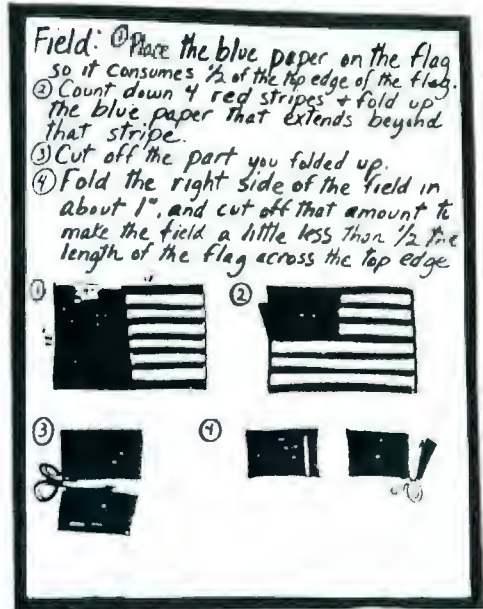 Field: ① Place the blue paper on the flag
so it consumes ½ of the top edge of the flag.
② Count down 4 red stripes + fold up
the blue paper that extends beyond
that stripe.
③ Cut off the part you folded up.
④ Fold the right side of the field in
about 1", and cut off that amount to
make the field a little less than ½ the
length of the flag across the top edge
① ②
③ ④